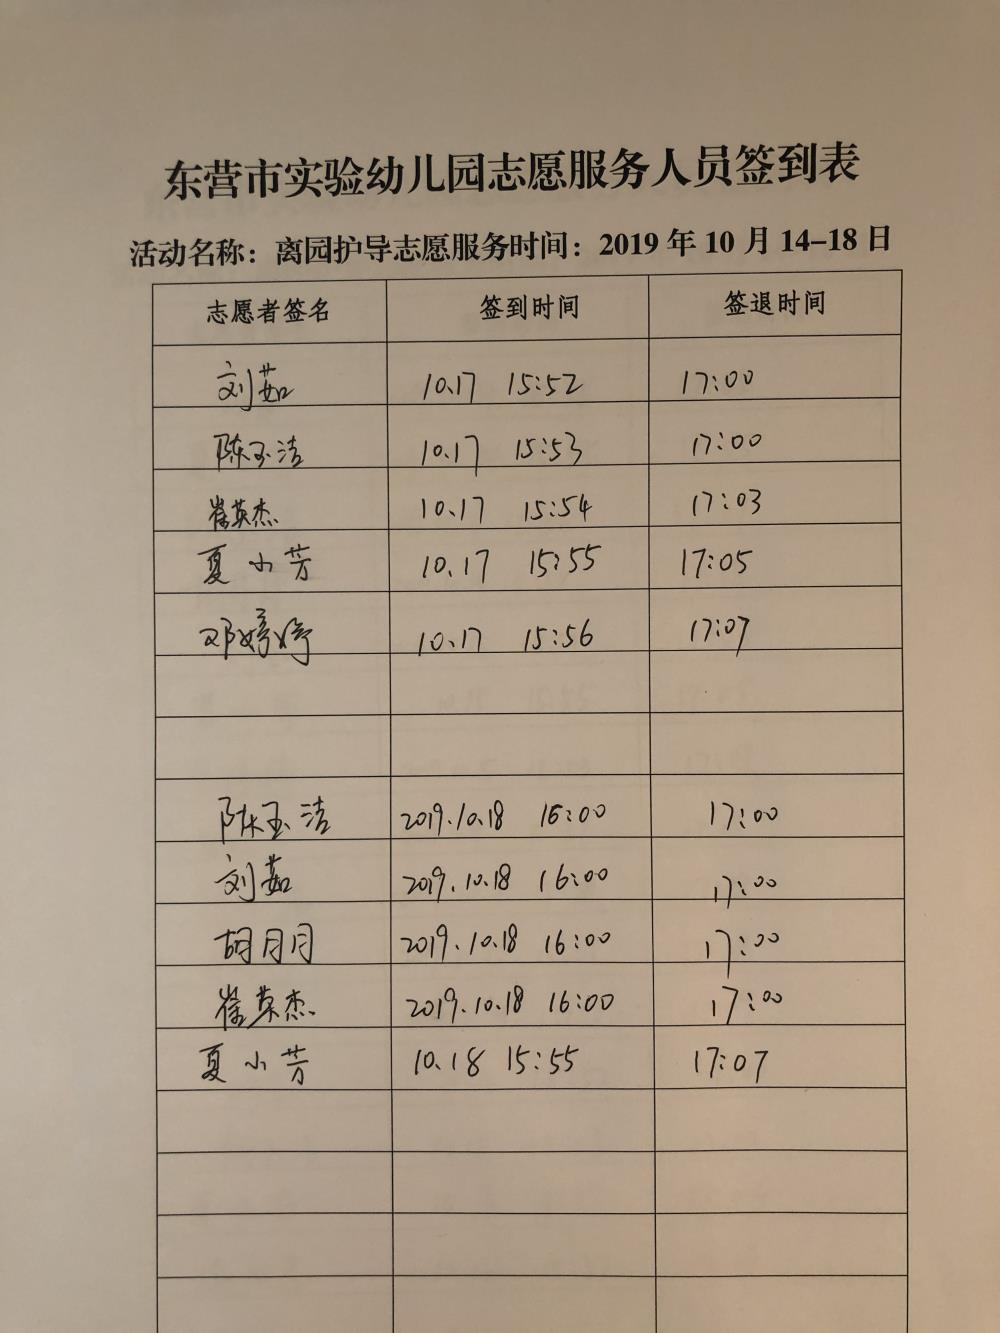 东营市实验幼儿园志愿服务人员签到表
活动名称：离园护导志愿服务时间：2019 年 10 月 14-18 日
志愿者签名 签到时间 签退时间
刘茹 10.17 15:52 17:00
陈玉洁 10.17 15:53 17:00
崔英杰 10.17 15:54 17:03
夏小芳 10.17 15:55 17:05
邓婷婷 10.17 15:56 17:07
陈玉洁 2019.10.18 16:00 17:00
刘茹 2019.10.18 16:00 17:00
胡月月 2019.10.18 16:00 17:00
崔英杰 2019.10.18 16:00 17:00
夏小芳 10.18 15:55 17:07